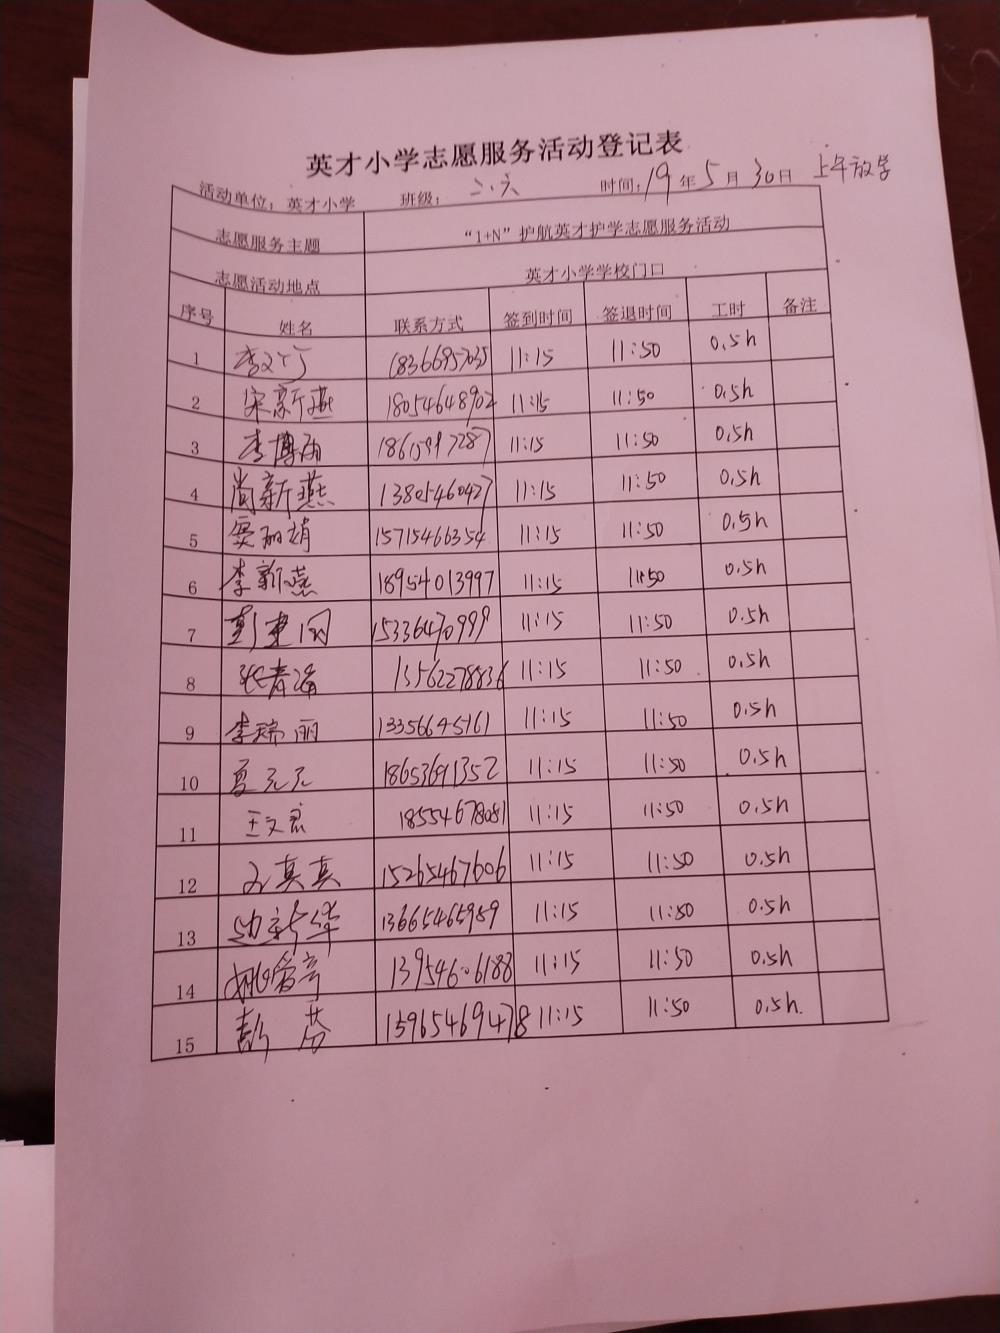 英才小学志愿服务活动登记表
活动单位：英才小学 班级：二.六 时间：19年5月30日 上午放学
志愿服务主题 “1+N”护航英才护学志愿服务活动
志愿活动地点 英才小学学校门口
序号 姓名 联系方式 签到时间 签退时间 工时 备注
1 18366957035 11:15 11:50 0.5h
2 宋新燕 18054648902 11:15 11:50 0.5h
3 李博雨 18615917287 11:15 11:50 0.5h
4 尚新燕 13805460427 11:15 11:50 0.5h
5 15715466354 11:15 11:50 0.5h
6 李新燕 18954013997 11:15 11:50 0.5h
7 彭建国 15336470999 11:15 11:50 0.5h
8 13562278836 11:15 11:50 0.5h
9 李瑞丽 13356645161 11:15 11:50 0.5h
10 夏元元 18653691352 11:15 11:50 0.5h
11 18554678081 11:15 11:50 0.5h
12 15265467606 11:15 11:50 0.5h
13 边新华 13665465989 11:15 11:50 0.5h
14 13954606188 11:15 11:50 0.5h
15 彭芬 13965469478 11:15 11:50 0.5h.